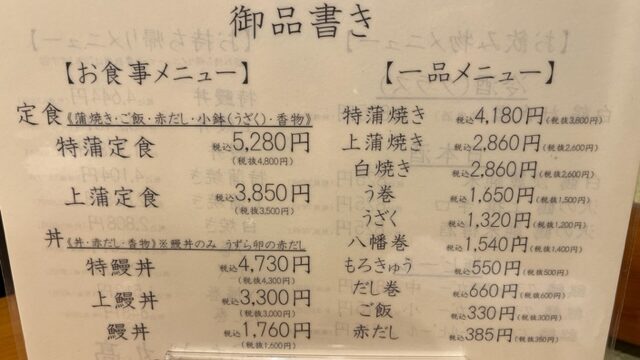 御品書き
【お食事メニュー】
定食《蒲焼き・ご飯・赤だし・小鉢(うざく)・香物》
特蒲定食 税込5,280円
(税抜4,800円)
上蒲定食 税込3,850円
(税抜3,500円)
丼《丼・赤だし・香物》※鰻丼のみ うずら卵の赤だし
特鰻丼 税込4,730円
(税抜4,300円)
上鰻丼 税込3,300円
(税抜3,000円)
鰻丼 税込1,760円
(税抜1,600円)
【一品メニュー】
特蒲焼き 税込4,180円(税抜3,800円)
上蒲焼き 税込2,860円(税抜2,600円)
白焼き 税込2,860円(税抜2,600円)
う巻 税込1,650円(税抜1,500円)
うざく 税込1,320円(税抜1,200円)
八幡巻 税込1,540円(税抜1,400円)
もろきゅう 税込550円(税抜500円)
だし巻 税込660円(税抜600円)
ご飯 税込330円(税抜300円)
赤だし 税込385円(税抜350円)